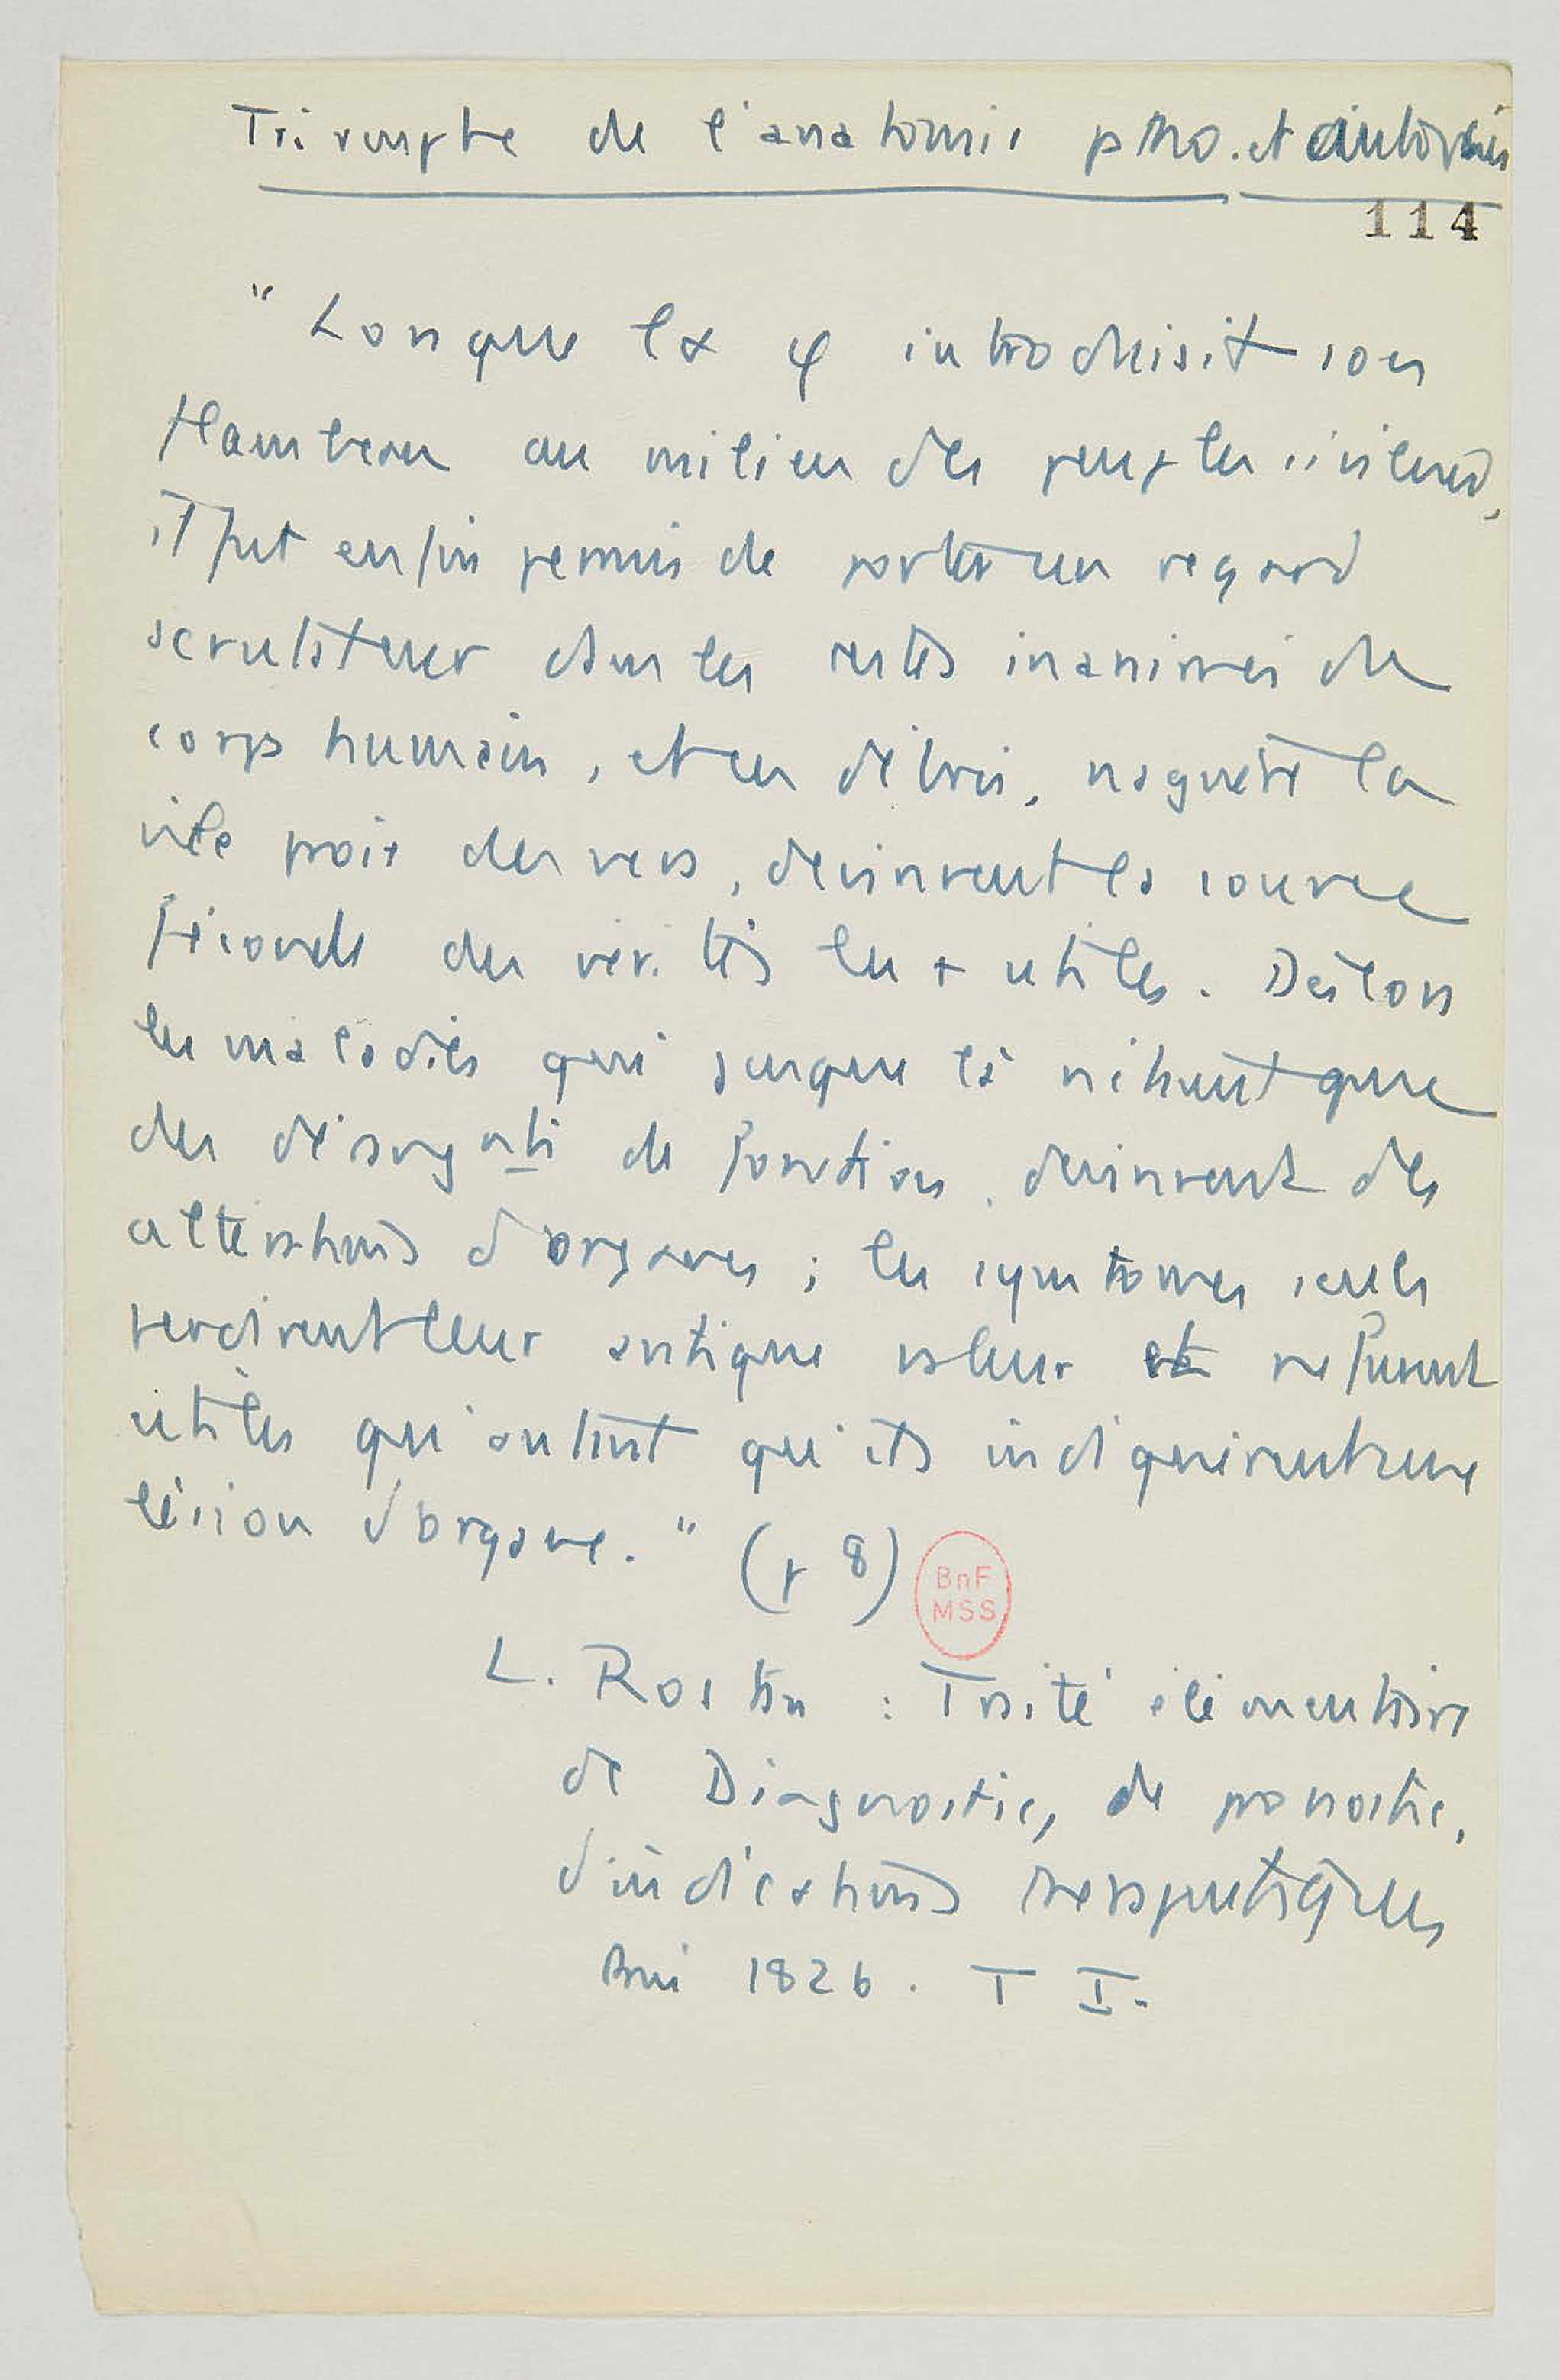 Triomphe de l'anatomie patho. et
114
"Lorsque la φ introduisit son
flambeau au milieu des peuples civilisés,
il fut enfin permis de porter un regard
scrutateur sur les restes inanimés du
corps humain, et ces débris, naguère la
vile proie des vers, devinrent la source
féconde des vérités les + utiles. Dès lors
les maladies qui jusque là n'étaient que
des désorgati de fonction, devinrent des
altérations d'organes ; les symptomes seuls
perdirent leur antique valeur et ne furent
utiles qu'autant qu'ils indiquèrent une
lésion d'organe." (p 8)
BnF
MSS
L. Rostan : Traité élémentaire
de Diagnostic, de pronostic,
d'indications thérapeutiques
Paris 1826. T I.